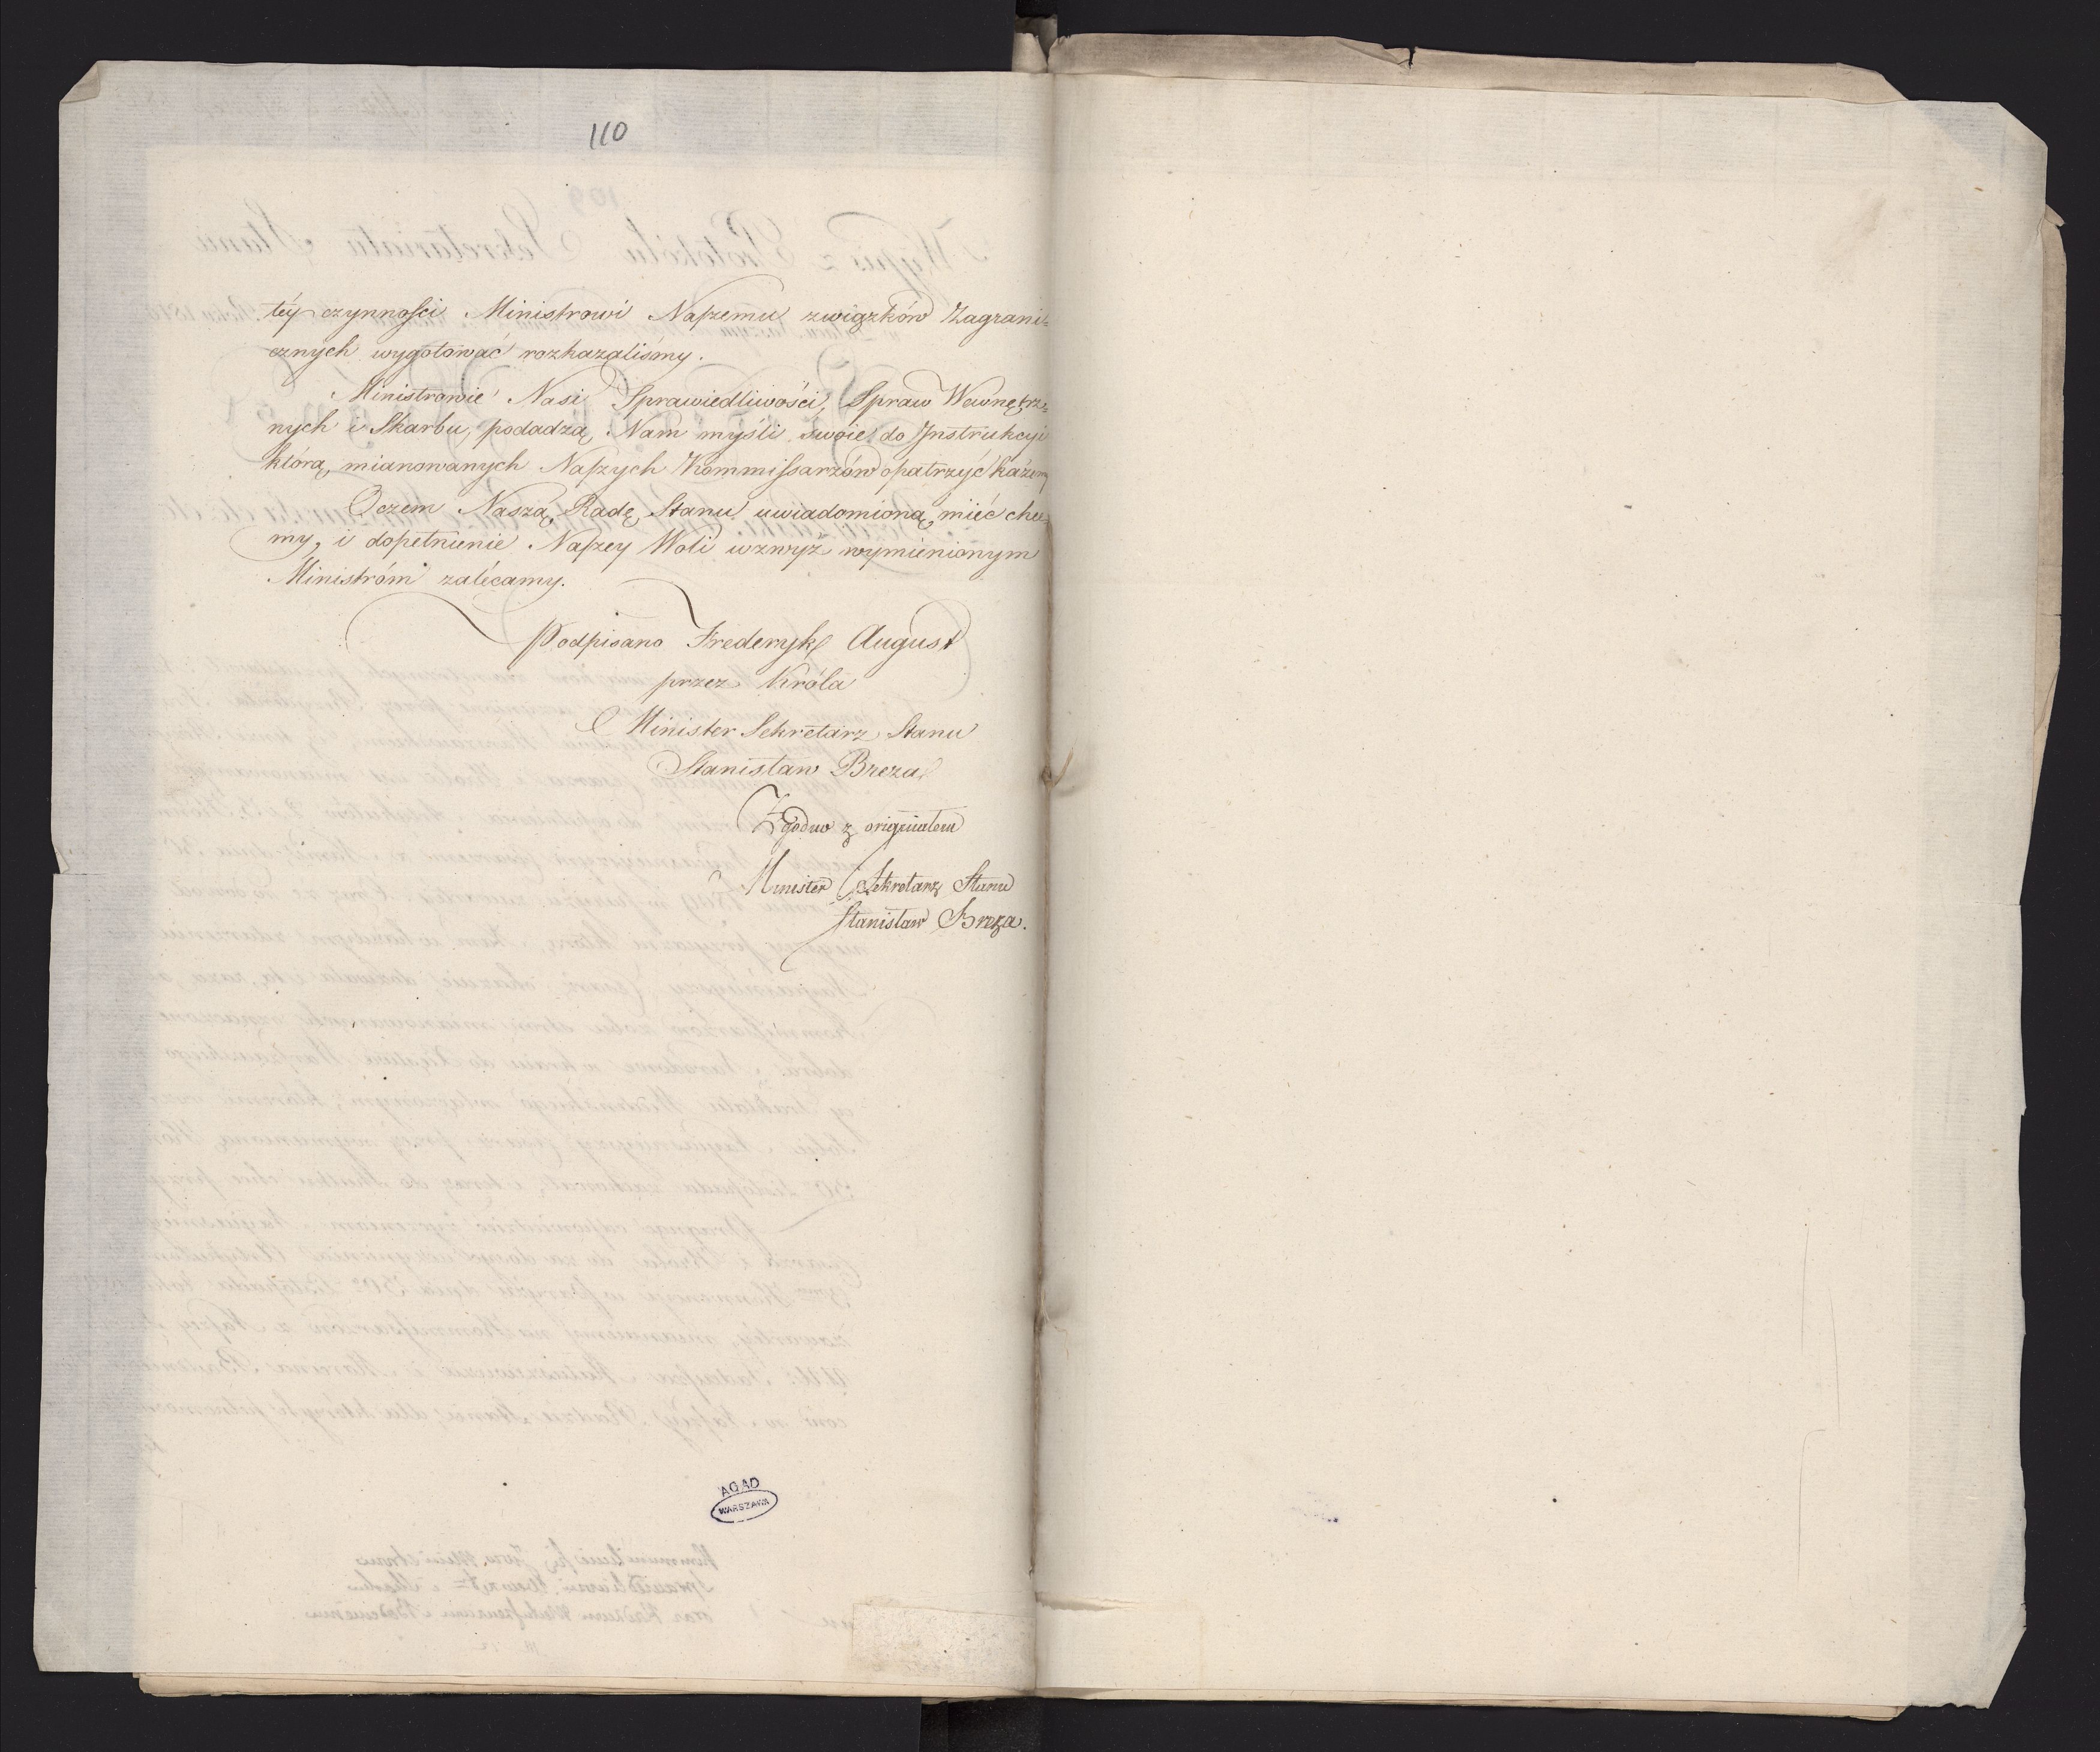 110
téy czynności Ministrowi Naszemu związków Zagrani=
cznych wygotować rozkazaliśmy.
Ministrowie Nasi Sprawiedliwości, Spraw Wewnętrz=
nych i Skarbu, podadzą Nam myśli swoie do Instrukcyi
którą, mianowanych Naszych Kommissarzów opatrzyć każem
Oczem Naszą Radę Stanu uwiadomioną mieć chce=
my, i dopełnienie Naszey Woli wzwyż wymienionym
Ministróm zalécamy.
Podpisano Frederyk August
przez Króla
Minister Sekretarz Stanu
Stanisław Breza
Zgodno z originałem
Minister Sekretarz Stanu
Stanisław Breza.
AGAD
WARSZAWA